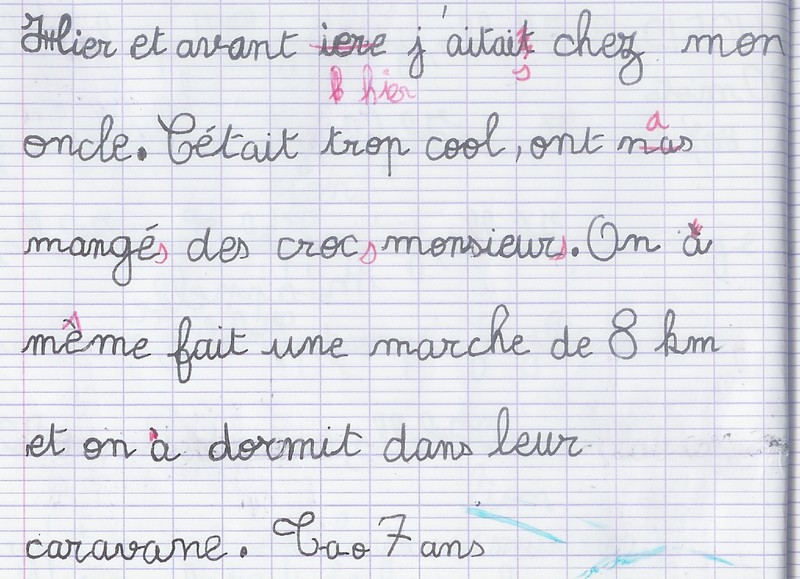 Hier et avant iere j'aitait chez mon
s
hier
oncle. C'était trop cool, ont nas
a
mangés des crocs monsieurs. On à
même fait une marche de 8 km
et on à dormit dans leur
caravane. Tao 7 ans